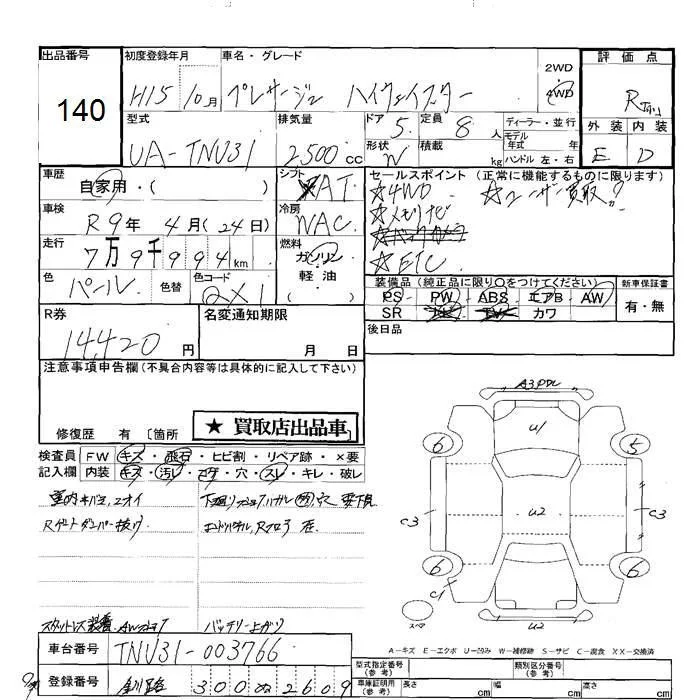 出品番号
140
初度登録年月
H15 10月
車名・グレード
プレサージュ ハイウェイスター
2WD
4WD
評価点
R
外装 内装
E D
型式
UA-TNU31
排気量
2,500cc
ドア 5
定員 8人
形状 W
積載 kg
ディーラー・並行
モデル年式 年
ハンドル 左・右
車歴
自家用・( )
車検
R9年 4月(24日)
走行
7万9千994km
色
パール
色替
色コード
QX1
シフト
AT
冷房
WAC
燃料
ガソリン
軽油
( )
セールスポイント(正常に機能するものに限ります)
☆4WD ☆ユーザー買取!
☆メモリナビ
☆バックカメラ
☆ETC
装備品(純正品に限り○をつけてください)
PS PW ABS エアB AW
SR TV カワ
新車保証書
有・無
後日品
R券
14,420円
名変通知期限
月 日
注意事項申告欄(不具合内容等は具体的に記入して下さい)
修復歴 有 〔箇所
★ 買取店出品車
検査員記入欄
FW キズ・飛石・ヒビ割・リペア跡・×要
内装 キズ・汚レ・コゲ・穴・スレ・キレ・破レ
室内キバミ、ニオイ
Rゲートダンパー抜け
スタットレス装着
バッテリー上がり
A3
U1
U2
6
5
C3
C3
6
6
C1
U2
スペア
A-キズ E-エクボ U-凹み W-補修跡 S-サビ C-腐食 XX-交換済
車台番号
TNU31-003766
登録番号
300 ぬ 2609
型式指定番号(参考)
類別区分番号(参考)
車庫証明用(参考)
長さ cm
幅 cm
高さ cm